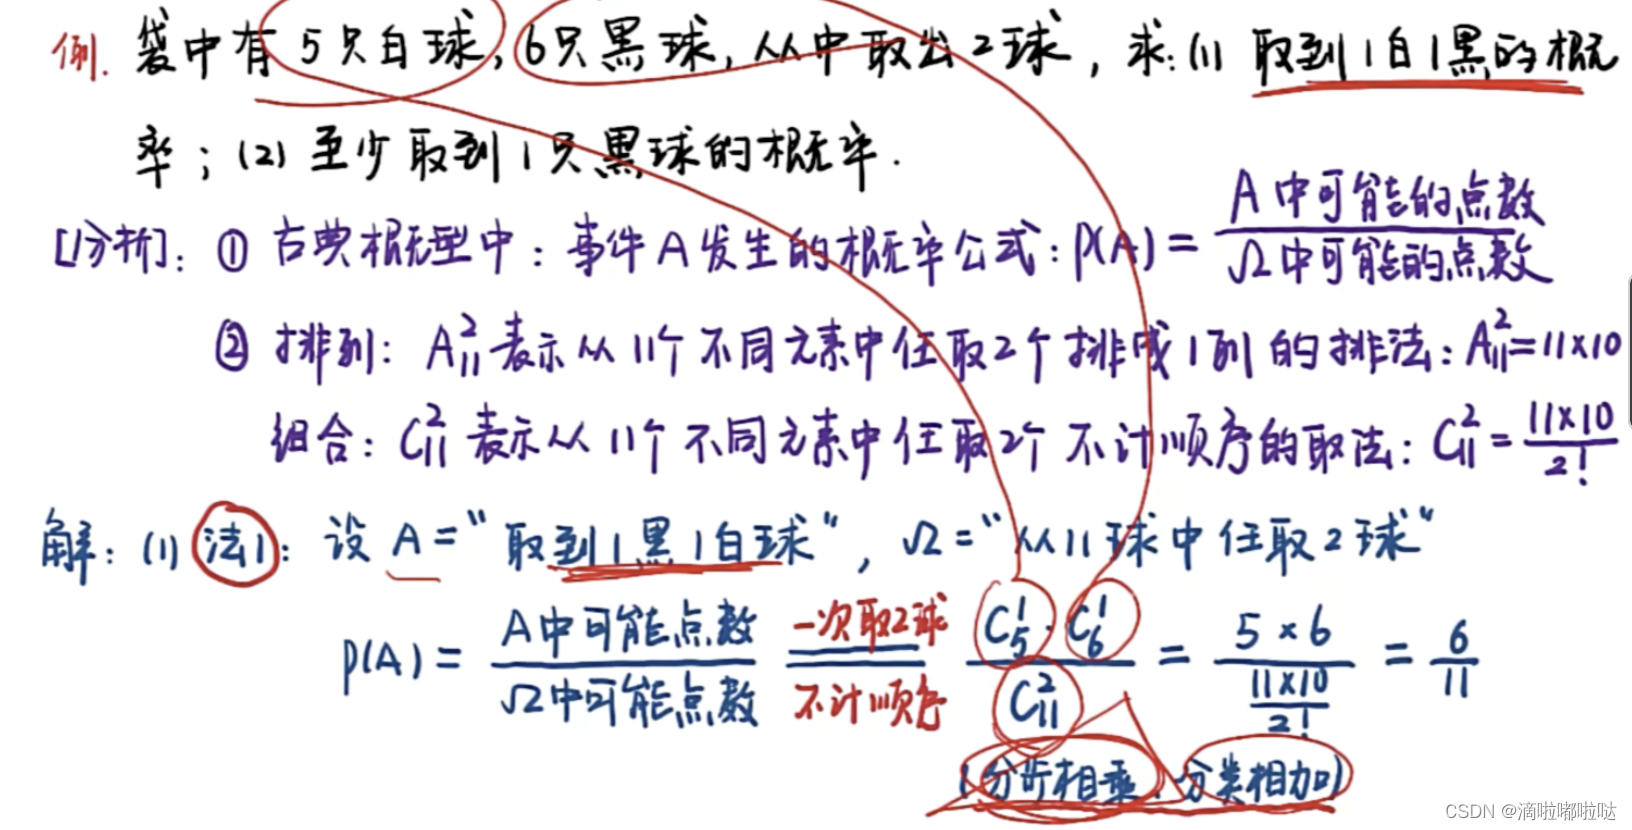 例. 袋中有5只白球,6只黑球,从中取出2球,求:(1) 取到1白1黑的概
率;(2) 至少取到1只黑球的概率.
[分析]: ① 古典概型中:事件A发生的概率公式:P(A) = A中可能的点数 / Ω中可能的点数
② 排列: A₁₁² 表示从11个不同元素中任取2个排成1列的排法: A₁₁² = 11×10
组合: C₁₁² 表示从11个不同元素中任取2个不计顺序的取法: C₁₁² = 11×10 / 2!
解: (1) 法1: 设 A = "取到1黑1白球", Ω = "从11球中任取2球"
P(A) = A中可能点数 / Ω中可能点数 一次取2球 不计顺序 = C₅¹·C₆¹ / C₁₁² = 5×6 / (11×10 / 2!) = 6/11
(分步相乘,分类相加)
CSDN @滴啦嘟啦哒